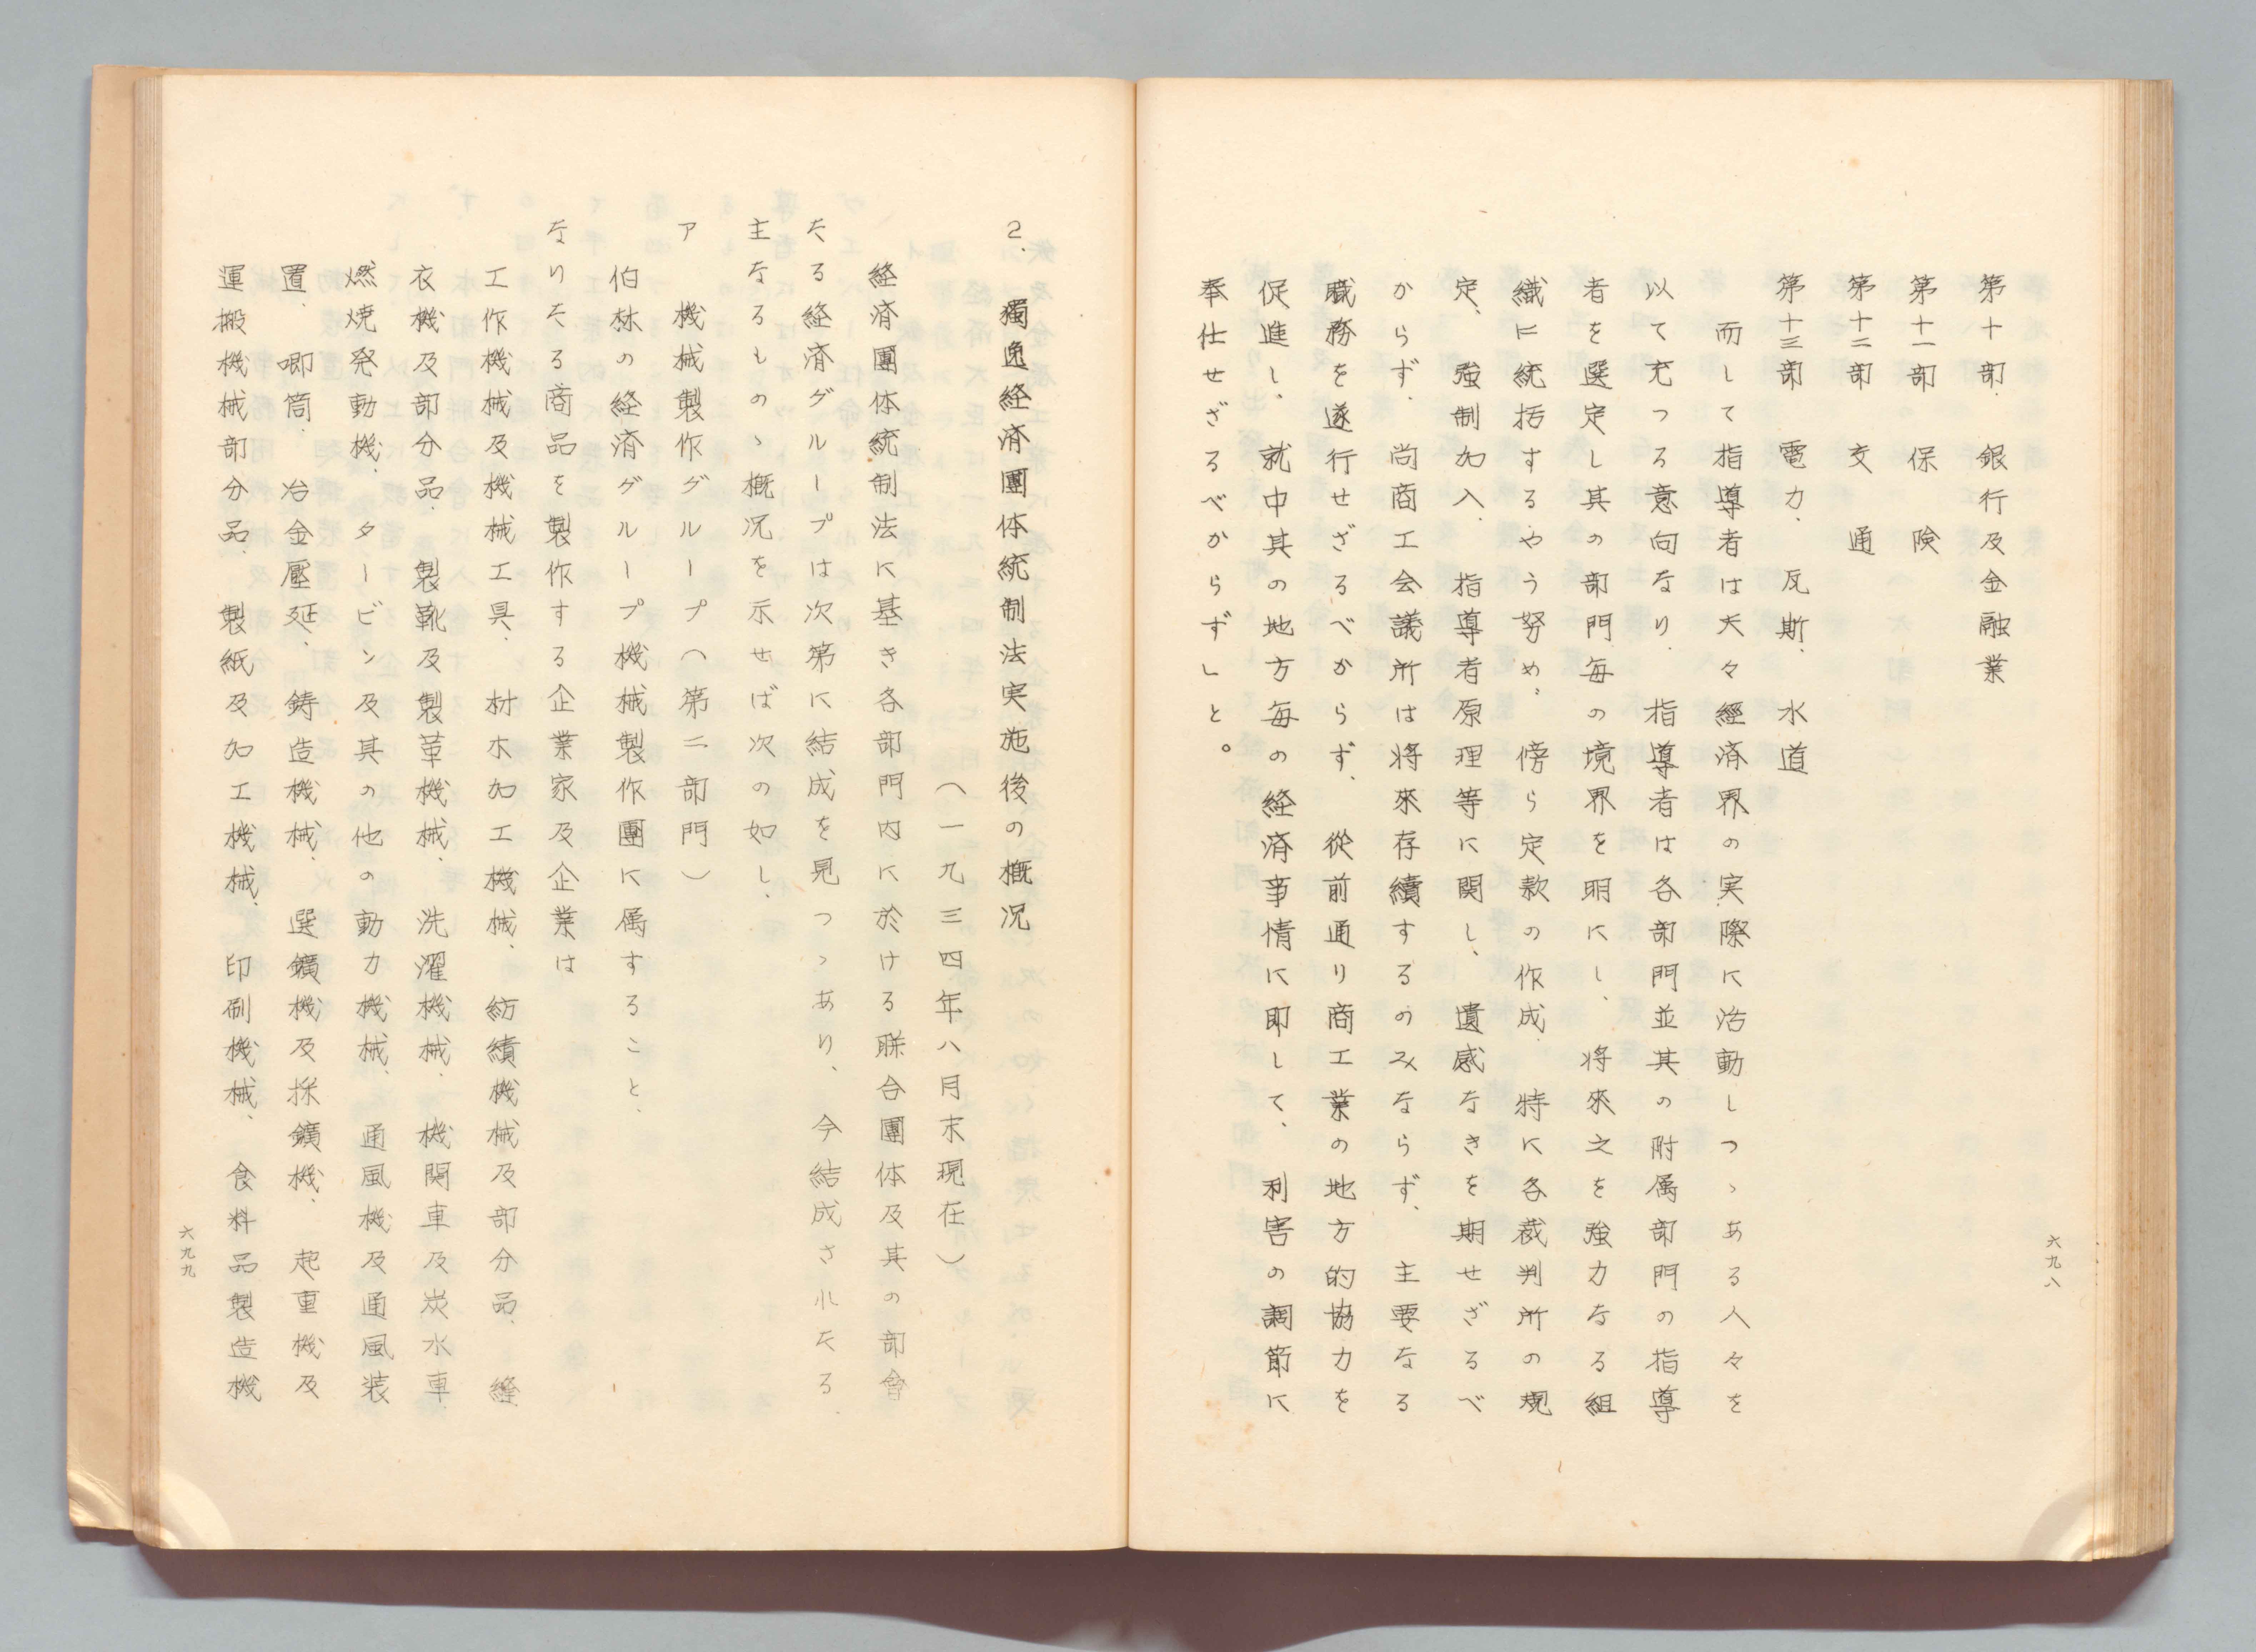 第十部　銀行及金融業
第十一部　保　険
第十二部　交　通
第十三部　電力、瓦斯、水道
而して指導者は夫々經済界の実際に活動しつゝある人々を
以て充つる意向なり、指導者は各部門並其の附属部門の指導
者を選定し其の部門毎の境界を明にし、将來之を強力なる組
織に統括するやう努め、傍ら定款の作成、特に各裁判所の規
定、強制加入、指導者原理等に関し、遺感なきを期せざるべ
からず、尚商工会議所は将來存續するのみならず、主要なる
職務を遂行せざるべからず、從前通り商工業の地方的協力を
促進し、就中其の地方毎の経済事情に即して、利害の調節に
奉仕せざるべからずしと。
六九八
2.　獨逸経済團体統制法実施後の概況
（一九三四年八月末現在）
経済團体統制法に基き各部門内に於ける聯合團体及其の部會
たる経済グループは次第に結成を見つゝあり、今結成されたる
主なるものゝ概況を示せば次の如し、
ア　機械製作グループ（第二部門）
伯林の経済グループ機械製作團に属すること、
なりたる商品を製作する企業家及企業は
工作機械及機械工具、材木加工機械、紡績機械及部分品、縫
衣機及部分品、製靴及製革機械、洗濯機械、機関車及炭水車
燃焼発動機、タービン及其の他の動力機械、通風機及通風装
置、喞筒、冶金壓延、鋳造機械、選鑛機及採鑛機、起重機及
運搬機械部分品、製紙及加工機械、印刷機械、食料品製造機
六九九